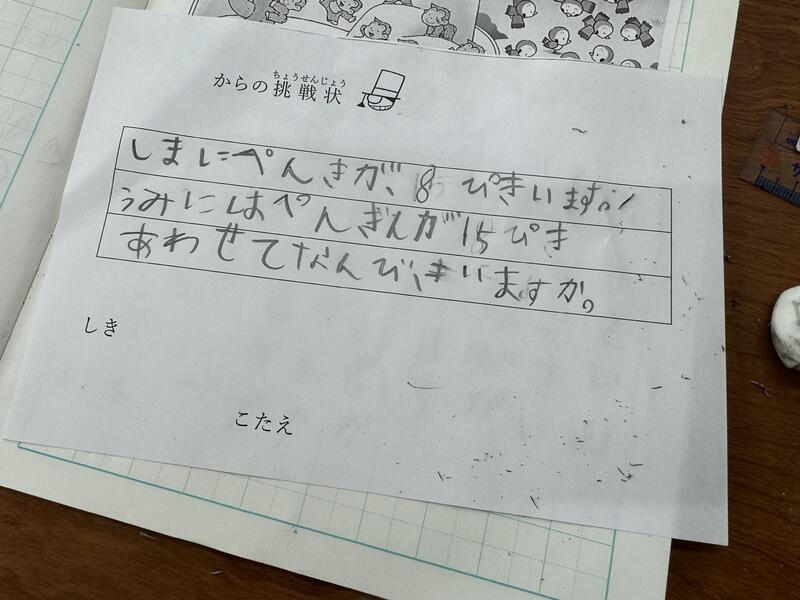 からの挑戦状
ちょうせんじょう
しまにぺんきが、8ぴきいます。
うみにはぺんぎんが15ぴき
あわせてなんびきいますか。
しき
こたえ